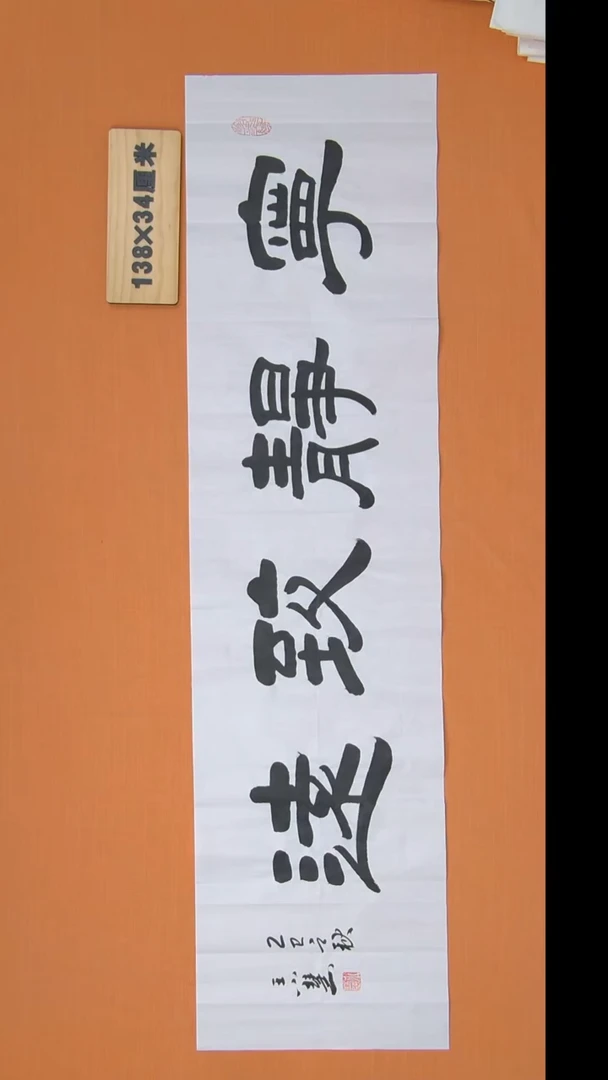 寧靜致遠
乙巳之秋
138×34厘米